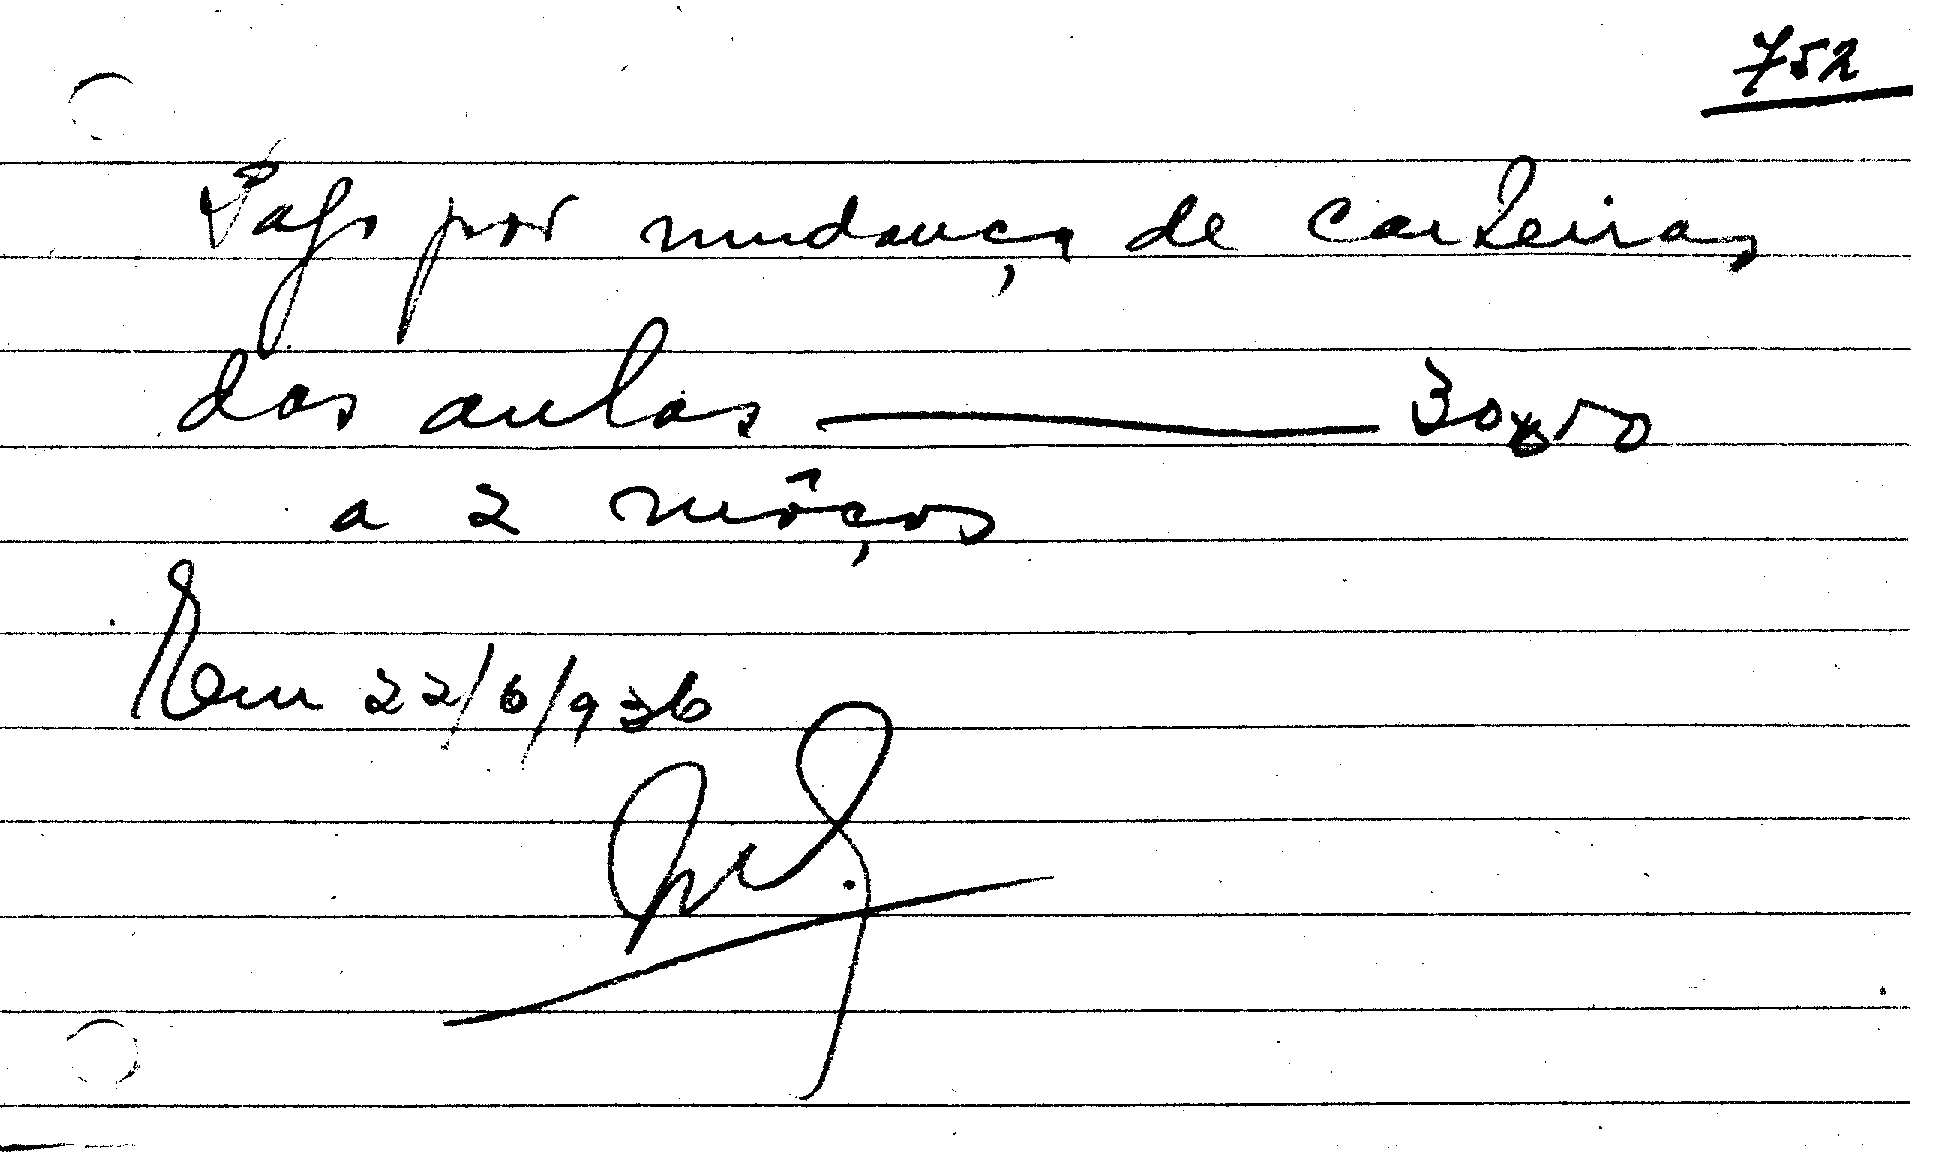 752
Pago por mudança de carteiras
das aulas — 30$00
a 2 môços
Em 22/6/936